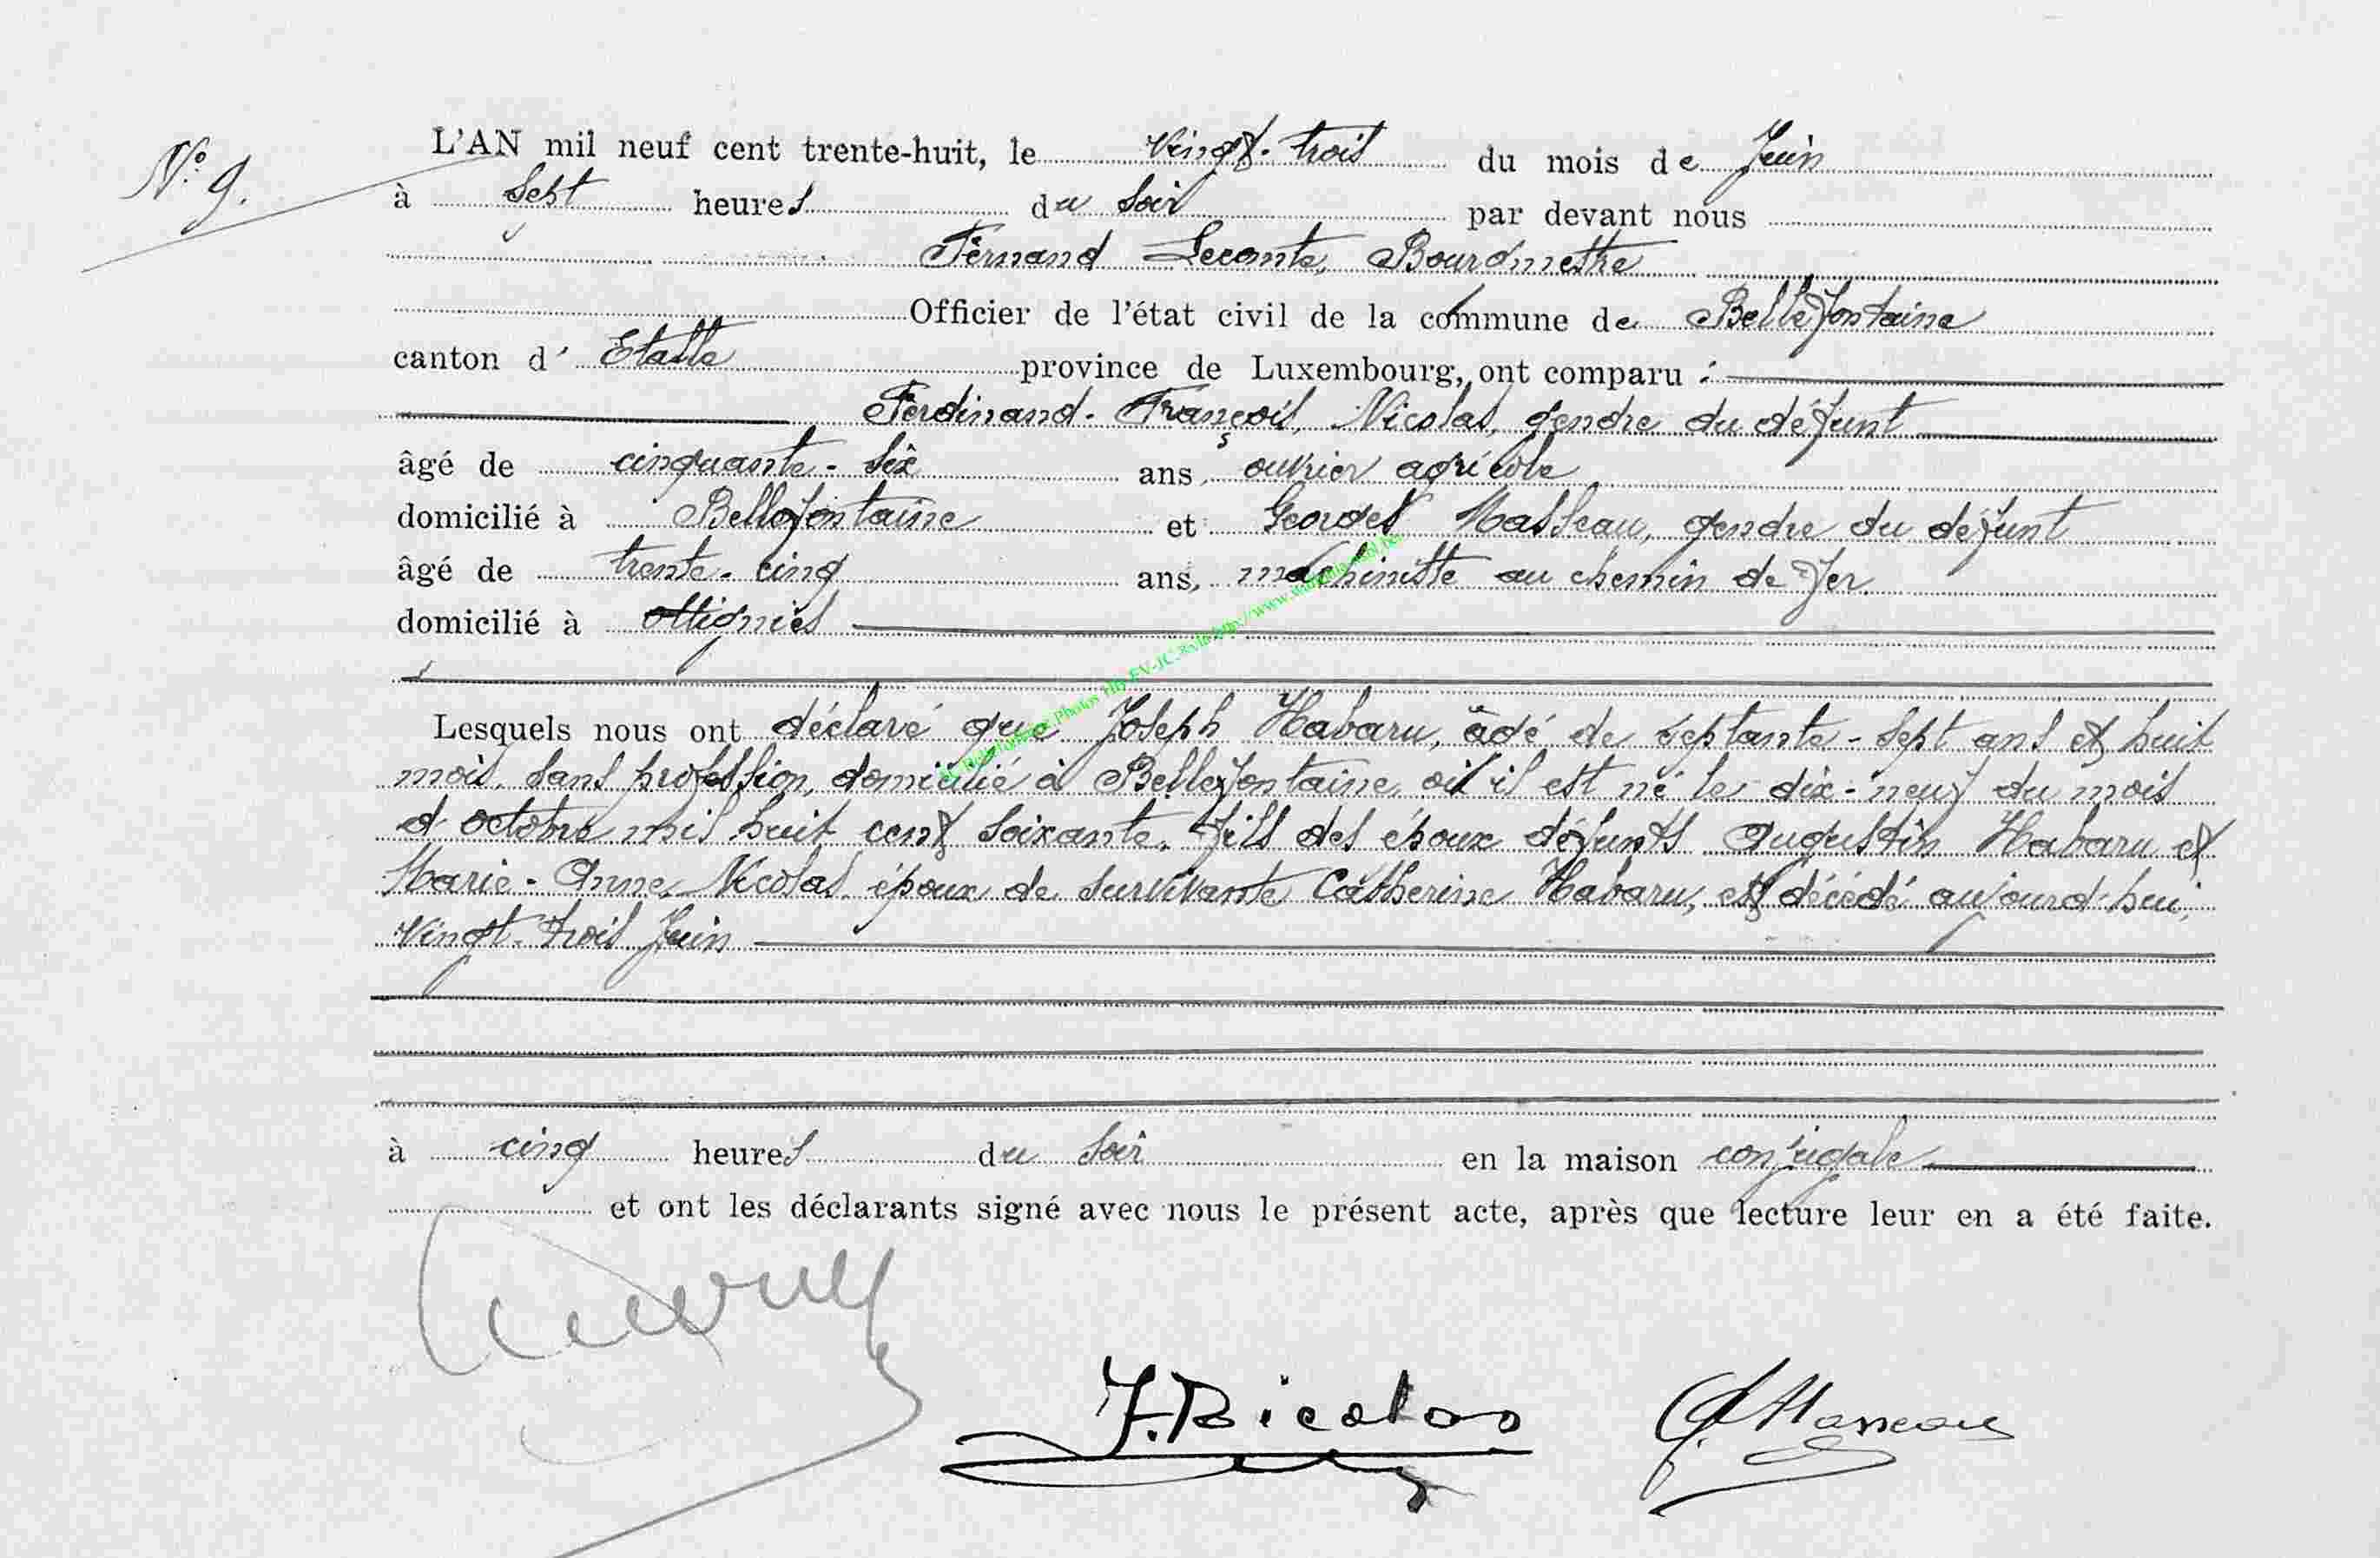 N° 9.
L'AN mil neuf cent trente-huit, le vingt-trois du mois de Juin
à sept heures du soir par devant nous
Fernand Leconte, Bourgmestre
Officier de l'état civil de la commune de Bellefontaine
canton d' Etalle province de Luxembourg, ont comparu :
Ferdinand-François, Nicolas, gendre du défunt
âgé de cinquante-six ans, ouvrier agricole
domicilié à Bellefontaine et Georges Masseau, gendre du défunt
âgé de trente-cinq ans, machiniste au chemin de fer.
domicilié à Ottignies
Lesquels nous ont déclaré que Joseph Habaru, âgé de septante-sept ans et huit
mois, sans profession, domicilié à Bellefontaine, où il est né le dix-neuf du mois
d'octobre mil huit cent soixante, fils des époux défunts Augustin Habaru et
Marie-Anne Nicolas, époux de survivante Catherine Habaru, est décédé aujourd'hui,
vingt-trois Juin
à cinq heures du soir en la maison conjugale
et ont les déclarants signé avec nous le présent acte, après que lecture leur en a été faite.
F. Nicolas G. Masseau